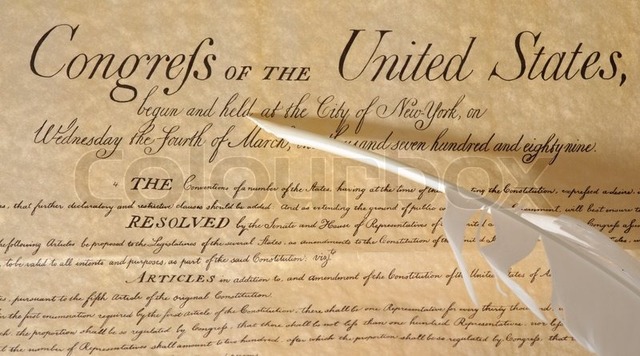 Congreſs OF THE United States,
begun and held at the City of New-York, on
Wednesday the Fourth of March, thousand seven hundred and eighty nine.
THE Conventions of a number of the States, having at the time of their adopting the Constitution, expreſsed a desire
s, that further declaratory and restrictive clauses should be added: And as extending the ground of public
RESOLVED by the Senate and House of Representatives of the United States of Congreſs
following Articles be proposed to the Legislatures of the several States, as amendments to the Constitution of the
to be valid to all intents and purposes, as part of the said Constitution. viz.t
ARTICLES in addition to, and amendment of the Constitution of the United States of
s, pursuant to the fifth Article of the original Constitution.
the first enumeration required by the first Article of the Constitution, there shall be one Representative for every thirty thousand,
the proportion shall be so regulated by Congreſs, that there shall be not leſs than one hundred Representatives, nor leſs
the number of Representatives shall amount to two hundred, after which the proportion shall be so regulated by Congreſs, that
colourbox